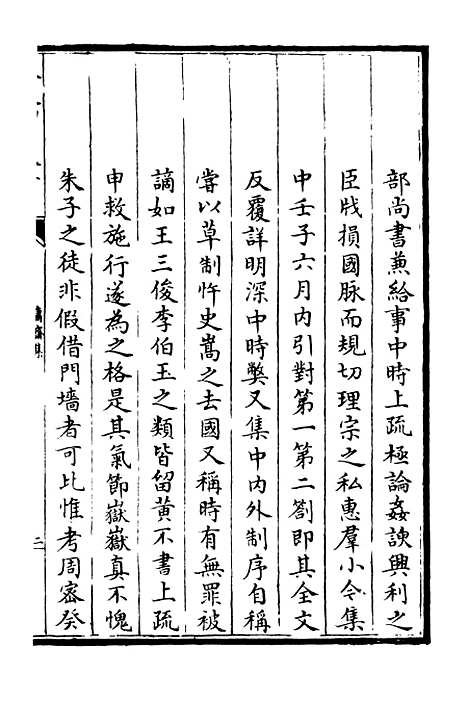 部尚書兼給事中時上疏極論姦諛興利之
臣戕損國脉而規切理宗之私惠羣小令集
中壬子六月内引對第一第二劄即其全文
反覆詳明深中時弊又集中内外制序自稱
嘗以草制忤史嵩之去國又稱時有無罪被
謫如王三俊李伯玉之類皆留黄不書上疏
申救施行遂為之格是其氣節嶽嶽真不愧
朱子之徒非假借門墻者可比惟考周宻癸